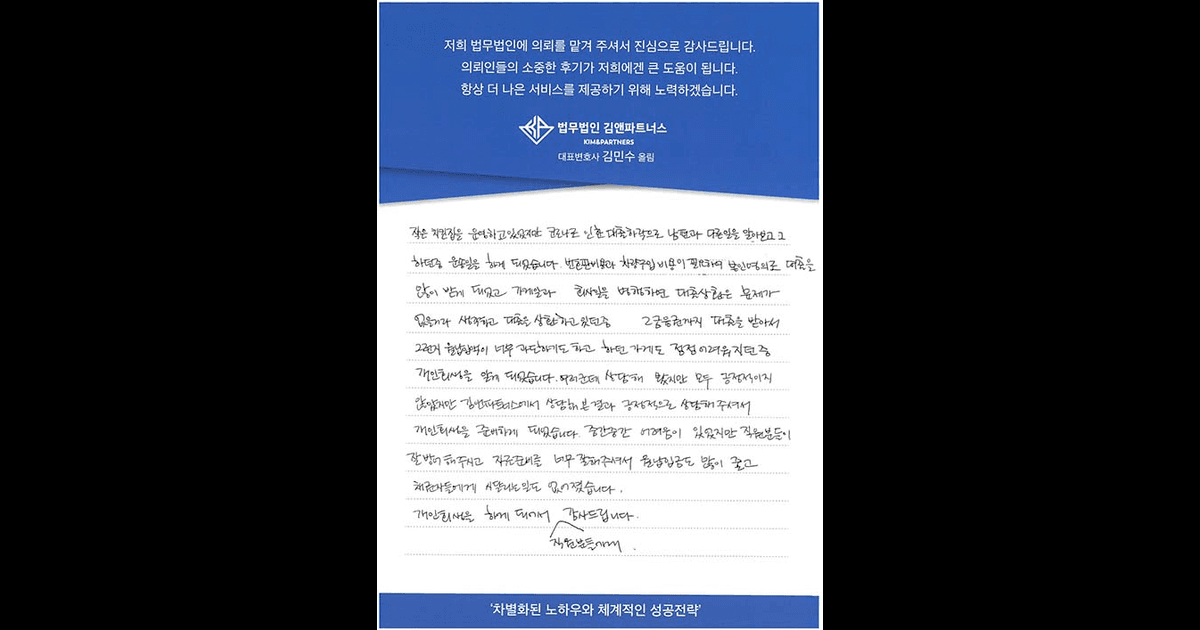 저희 법무법인에 의뢰를 맡겨 주셔서 진심으로 감사드립니다.
의뢰인들의 소중한 후기가 저희에겐 큰 도움이 됩니다.
항상 더 나은 서비스를 제공하기 위해 노력하겠습니다.
법무법인 김앤파트너스
KIM&PARTNERS
대표변호사 김민수 올림
작은 치킨집을 운영하고 있었지만 코로나로 인한 매출하락으로 남편과 다른일을 알아보고
하던중 운송일을 하게 되었습니다. 번호판비용과 차량구입 비용이 필요하여 본인명의로 대출을
많이 받게 되었고 가게일과 회사일을 병행하면 대출상환은 문제가
없을거라 생각하고 대출을 상환하고 있던중 2금융권까지 대출을 받아서
그런지 월납입액이 너무 과다하기도 하고 하던 가게도 점점어려워지던중
개인회생을 알게 되었습니다. 여러군데 상담해 왔지만 모두 긍정적이지
않았지만 김앤파트너스에서 상담해 본 결과 긍정적으로 상담해 주셔서
개인회생을 준비하게 되었습니다. 중간중간 어려움이 있었지만 직원분들이
잘 해주시고 자료준비를 너무 잘해주셔서 월납입금도 많이 줄고
채권자들에게 시달리는일도 없어졌습니다.
개인회생을 하게 되어서 감사드립니다.
직원분들에게.
'차별화된 노하우와 체계적인 성공전략'